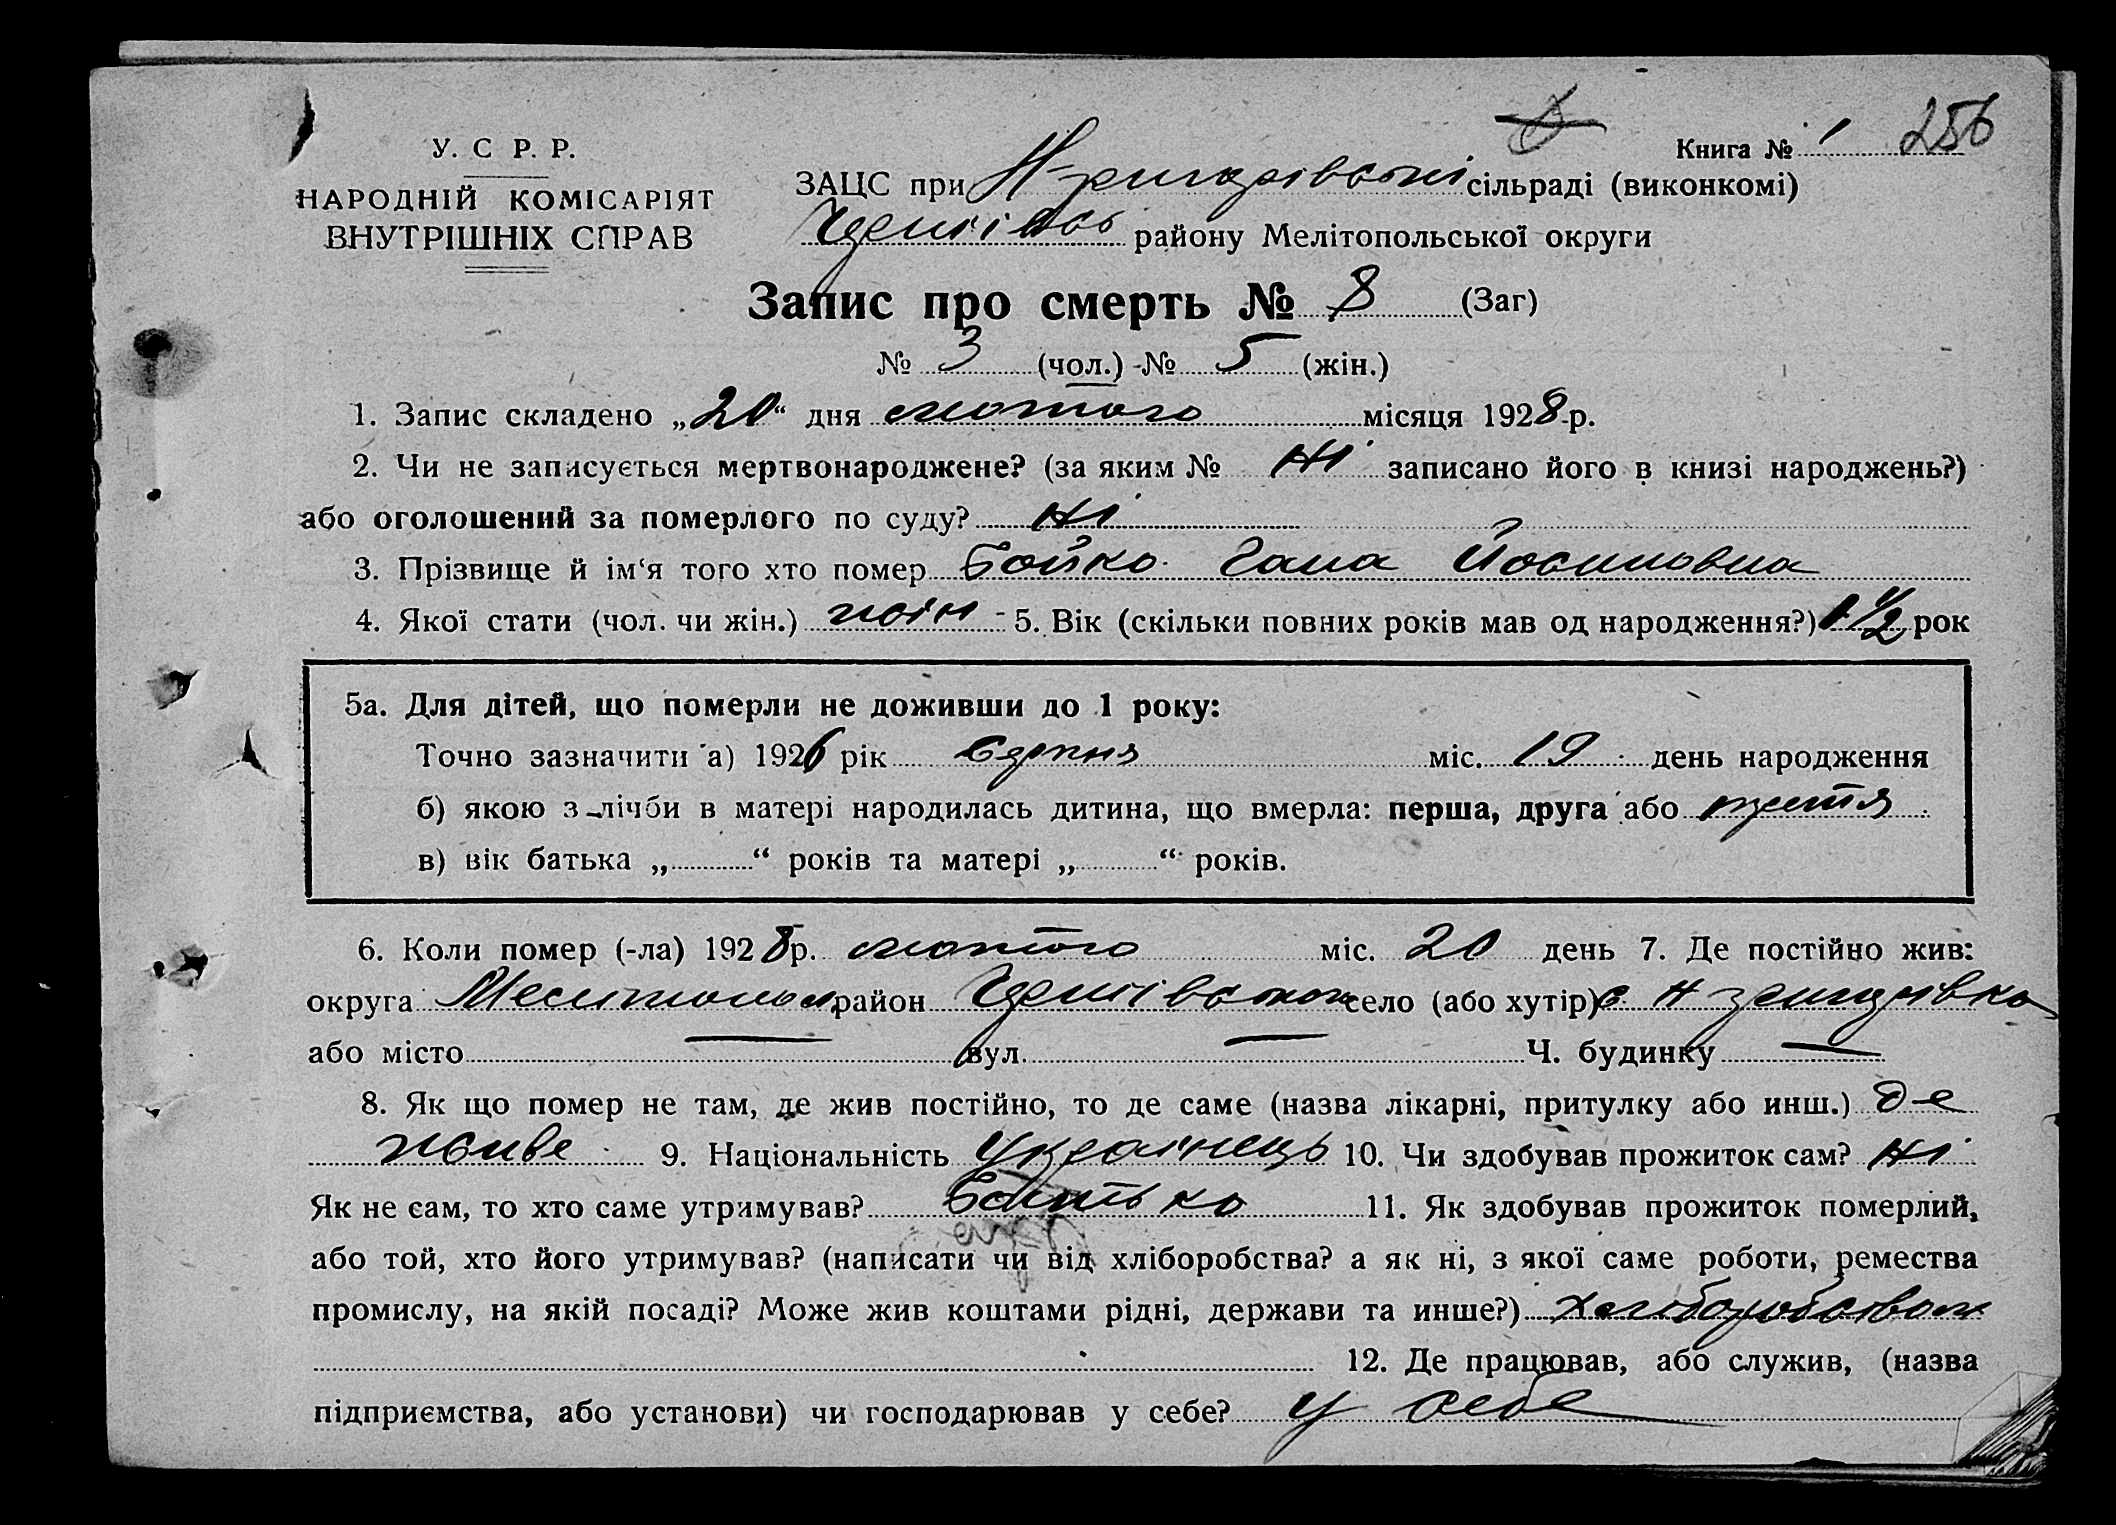 Книга № 1 256
У. С. Р. Р.
НАРОДНІЙ КОМІСАРІЯТ
ВНУТРІШНІХ СПРАВ
ЗАЦС при сільраді (виконкомі)
району Мелітопольської округи
Запис про смерть № 8 (Заг)
№ 3 (чол.) № 5 (жін.)
1. Запис складено „20“ дня лютого місяця 1928 р.
2. Чи не записується мертвонароджене? (за яким № ні записано його в книзі народжень?)
або оголошений за померлого по суду? ні
3. Прізвище й ім‘я того хто помер Бойко Гана Йосиповна
4. Якої стати (чол. чи жін.) жін 5. Вік (скільки повних років мав од народження?) 1 1/2 рок
5а. Для дітей, що померли не доживши до 1 року:
Точно зазначити а) 1926 рік Серпня міс. 19 день народження
б) якою з лічби в матері народилась дитина, що вмерла: перша, друга або третя
в) вік батька „ “ років та матері „ “ років.
6. Коли помер (-ла) 1928 р. лютого міс. 20 день 7. Де постійно жив:
округа район село (або хутір) с. Н
або місто — вул. — Ч. будинку —
8. Як що помер не там, де жив постійно, то де саме (назва лікарні, притулку або инш.) де
живе 9. Національність Українець 10. Чи здобував прожиток сам? ні
Як не сам, то хто саме утримував? Батько 11. Як здобував прожиток померлий,
або той, хто його утримував? (написати чи від хліборобства? а як ні, з якої саме роботи, ремества
промислу, на якій посаді? Може жив коштами рідні, держави та инше?) Хліборобством
12. Де працював, або служив, (назва
підприємства, або установи) чи господарював у себе? у себе